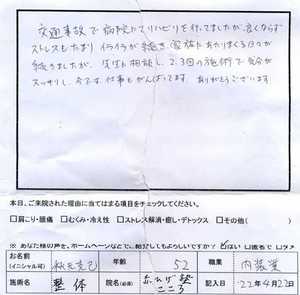 交通事故で病院にてリハビリを行ってましたが良くならず
ストレスもたまり イライラが続き、家族にあたりまくる日々が
続きましたが、先生に相談し、2、3回の施術で気分が
スッキリし、今では仕事もがんばってます。ありがとうございます
本日、ご来院された理由に当てはまる項目をチェックしてください。
□肩こり・腰痛 □むくみ・冷え性 □ストレス解消・癒し・デトックス □その他( )
※あなた様の声を、ホームページなどで、紹介してもよろしいですか? はい □匿名で
お名前 (イニシャル可) 年齢 52 職業 内装業
施術名 整体 院名(必須) こころ 記入日 22年4月27日